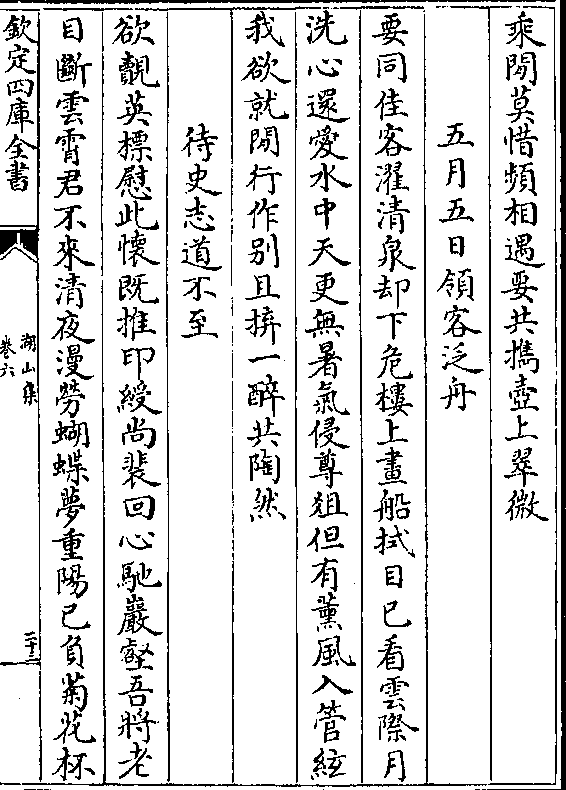 乘閒莫惜頻相遇要共攜壺上翠微
五月五日領客泛舟
要同佳客濯清泉却下危樓上畫船拭目已看雲際月
洗心還愛水中天更無暑氣侵尊俎但有薰風入管絃
我欲就閒行作别且拚一醉共陶然
待史志道不至
欲覩英標慰此懷既推印綬尚裴回心馳巖壑吾將老
目斷雲霄君不來清夜漫勞蝴蝶夢重陽已負菊花杯
欽定四庫全書
湖山集
卷六
二十三